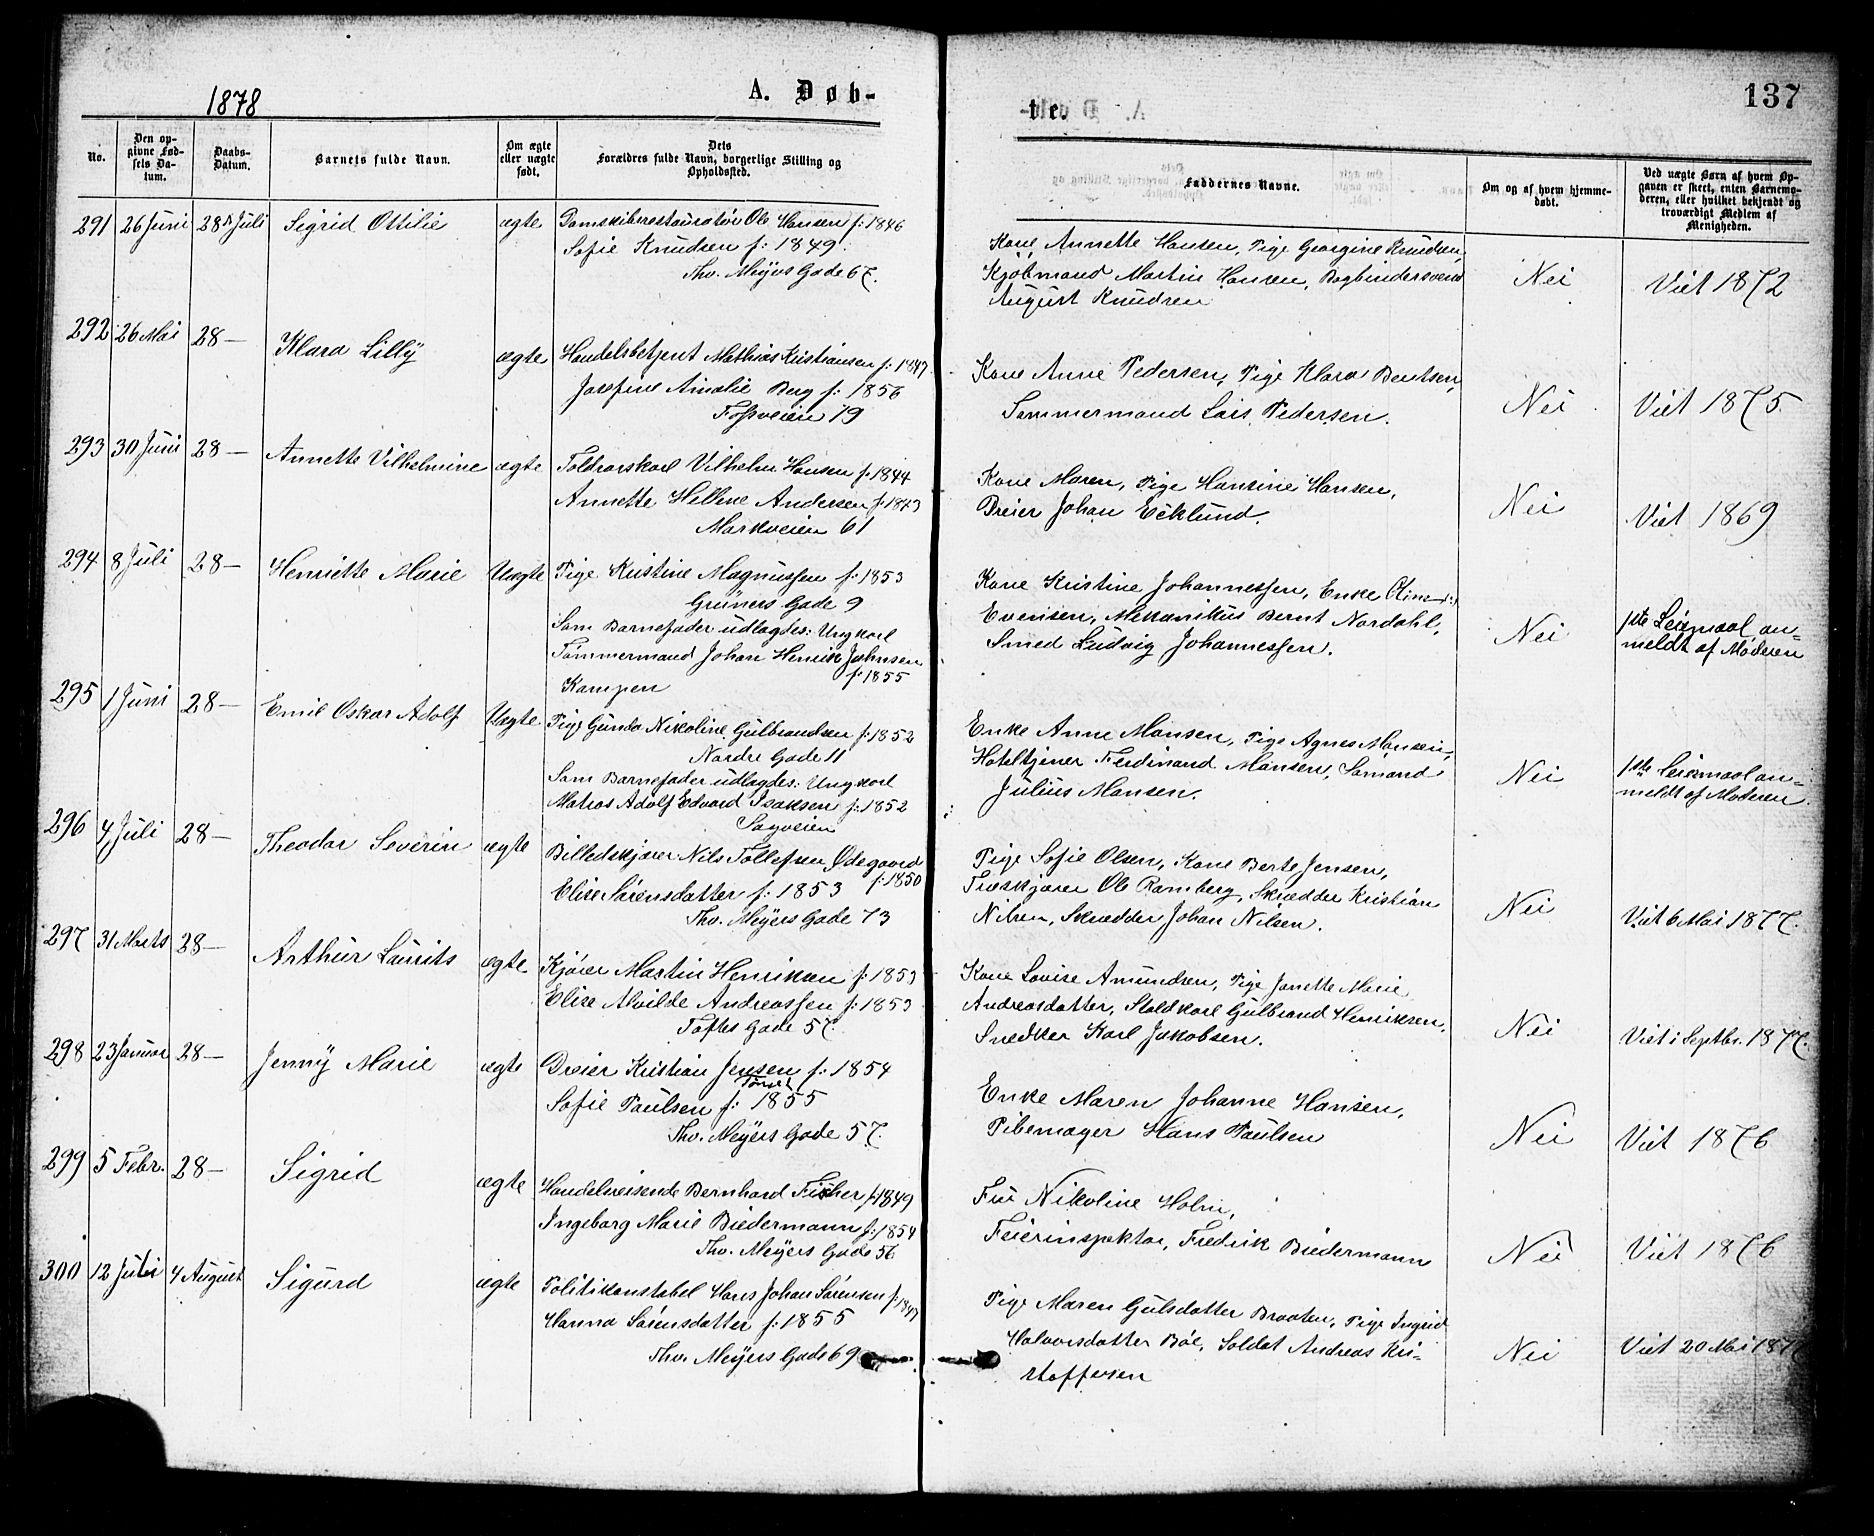 1878
A. Døb-
-te.
137
No.
Den op-
givne Fød-
sels Da-
tum.
Daabs-
Datum.
Barnets fulde Navn.
Om ægte
eller uægte
født.
Dets
Forældres fulde Navn, borgerlige Stilling og
Opholdssted.
Faddernes Navne.
Om og af hvem hjemme-
døbt.
Ved uægte Børn af hvem Op-
gaven er skeet, enten Barnemo-
deren, eller hvilket bekjendt og
troværdigt Medlem af
Menigheden.
291 26 Juni 28de Juli Sigrid Ottilie ægte Damskibsrestauratør Ole Hansen f: 1846
Sofie Knudsen f: 1849.
Thv. Meyers Gade 67.
Kone Annette Hansen, Pige Georgine Knudsen,
Kjøbmand Martin Hansen, Bogbindersvend
August Knudsen
Nei
Viet 1872
292 26 Mai 28 — Klara Lilly ægte Handelsbetjent Mathias Kristiansen f: 1847
Josefine Amalie Berg f: 1856
Fossveien 19
Kone Anne Pedersen, Pige Klara Bentsen,
Tømmermand Lars Pedersen.
Nei
Viet 1875.
293 30 Juni 28 — Annette Vilhelmine ægte Toldrorskarl Vilhelm Hansen f: 1844
Annette Hellene Andersen f: 1843
Markveien 61
Kone Maren, Pige Hansine Hansen,
Dreier Johan Ecklund.
Nei
Viet 1869
294 8 Juli 28 — Henriette Marie Uægte Pige Kristine Magnussen f: 1853
Grüners Gade 9
Som Barnefader udlagdes: Ungkarl
Tømmermand Johan Henrik Johnsen
f: 1855
Kampen
Kone Kristine Johannessen, Enke Oline
Evensen, Mekanikus Bernt Nordahl,
Smed Ludvig Johannessen.
Nei
1ste Leiermaal an-
meldt af Moderen
295 1 Juni 28 — Emil Oskar Adolf Uægte Pige Gunda Nikoline Gulbrandsen f: 1852
Nordre Gade 11
Som Barnefader udlagdes: Ungkarl
Matros Adolf Edvard Isaksen f: 1852
Sagveien
Enke Anne Monsen, Pige Agnes Monsen,
Hoteltjener Ferdinand Monsen, Sømand
Julius Monsen.
Nei
1ste Leiermaal an-
meldt af Moderen.
296 4 Juli 28 — Theodor Severin ægte Billedskjærer Nils Tollefsen Ødegaard
f: 1850
Elise Sørensdatter f: 1853
Thv. Meyers Gade 73
Pige Sofie Olsen, Kone Berte Jensen,
Træskjærer Ole Ramberg, Skrædder Kristian
Nilsen, Skrædder Johan Nilsen.
Nei
Viet 6 Mai 1877.
297 31 Marts 28 — Arthur Laurits ægte Kjører Martin Henriksen f: 1853
Elise Alvilde Andreassen f: 1853
Toftes Gade 57.
Kone Lovise Amundsen, Pige Janette Marie
Andreasdatter, Staldkarl Gulbrand Henriksen,
Snedker Karl Jakobsen.
Nei
Viet i Septbr. 1877.
298 23 Januar 28 — Jenny Marie ægte Dreier Kristian Jensen f: 1854
Sofie Paulsen f: 1855
Thv. Meyers Gade 57.
Enke Maren Johanne Hansen,
Pibemager Hans Paulsen
Nei
Viet 1876
299 5 Febr. 28 — Sigrid ægte Handelsreisende Bernhard Fischer f: 1849
Ingeborg Marie Biedermann f: 1854
Thv. Meyers Gade 56
Fru Nikoline Holm,
Feierinspektør, Fredrik Biedermann
Nei
Viet 1876
300 12 Juli 4 August Sigurd ægte Politikonstabel Hans Johan Sørensen f: 1847
Hanna Sørensdatter f: 1855
Thv. Meyers Gade 69
Pige Maren Gulsdatter Braaten, Pige Ingrid
Halvorsdatter Bøe, Soldat Andreas Kri-
stoffersen
Nei
Viet 20 Mai